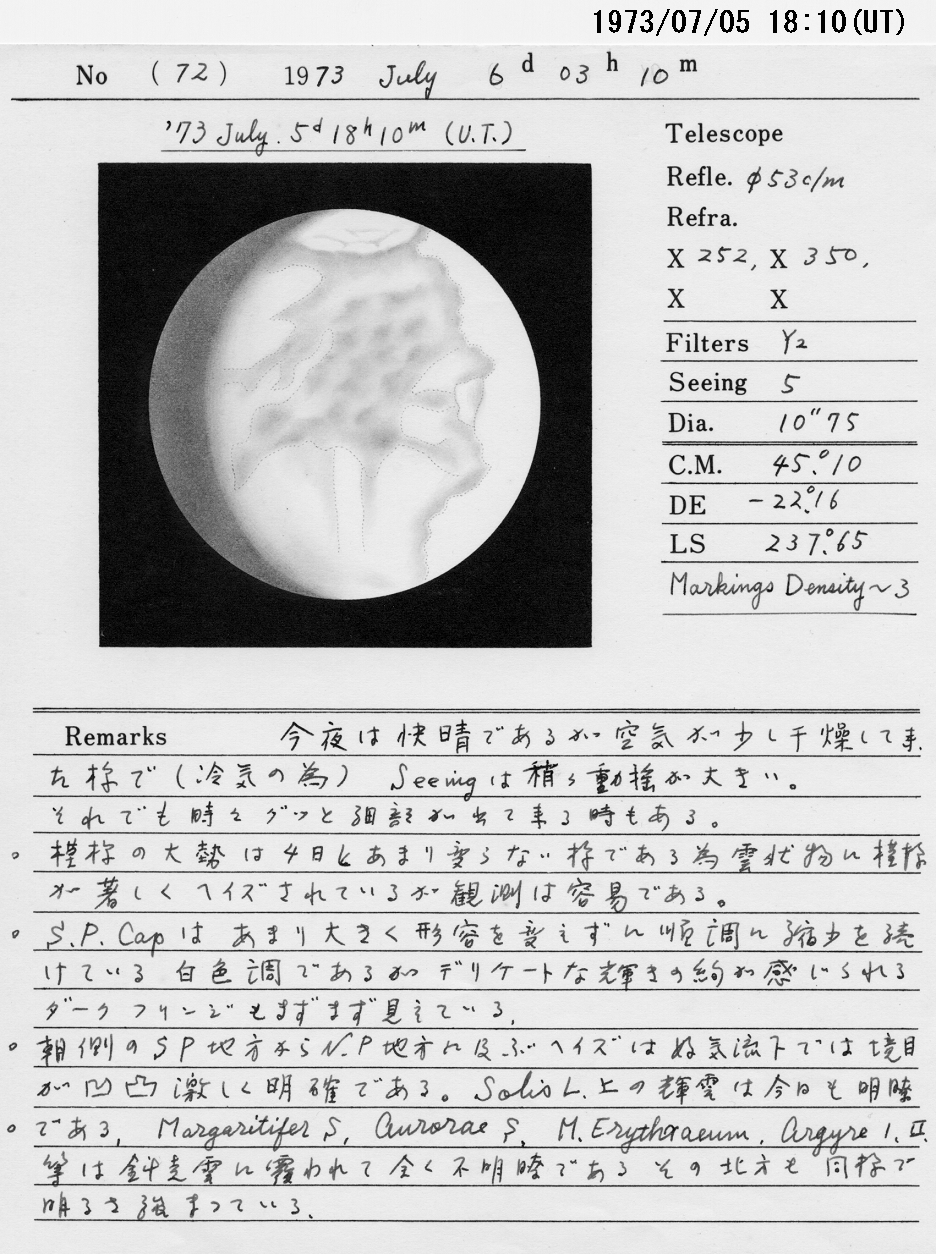 1973/07/05 18:10(UT)
No (72) 1973 July 6 d 03 h 10 m
'73 July. 5d 18h 10m (U.T.)
Telescope
Refle. φ53c/m
Refra.
X 252, X 350,
X X
Filters Y2
Seeing 5
Dia. 10"75
C.M. 45.°10
DE -22.°16
LS 237.°65
Markings Density~3
Remarks 今夜は快晴であるが空気が少し干燥して来
た様で(冷気の為) Seeingは稍々動揺が大きい。
それでも時々グッと細部が出て来る時もある。
。模様の大勢は4日とあまり変らない様である為雲状物に模様
が著しくヘイズされているが観測は容易である。
。S.P. Capは あまり大きく形容を変えずに順調に縮少を続
けている 白色調であるがデリケートな輝きの絢が感じられる
ダークフリンジもまずまず見えている.
。朝側のSP地方からN.P地方に及ぶヘイズは好気流下では境目
が凹凸激しく明確である。Solis L.上の輝雲は今日も明瞭
。である, Margaritifer S, Aurorae S, M.Erythraeum, Argyre I, II.
等は 雲に覆われて全く不明瞭である その北方も同様で
明るさ強まっている.